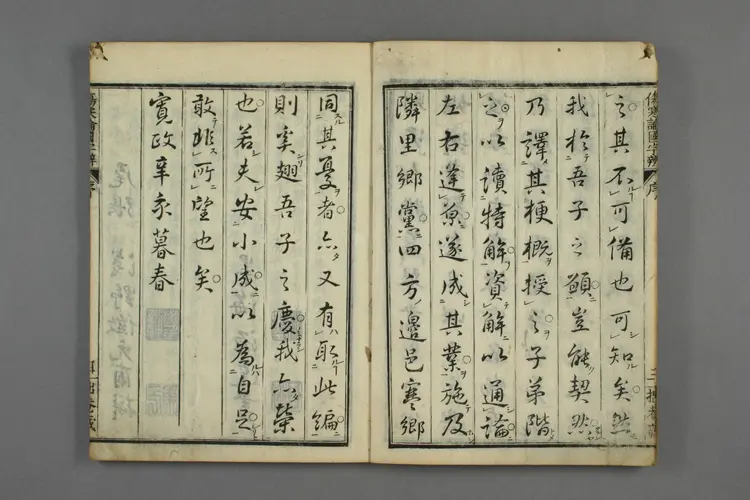 傷寒論國字辨 序
之其不可備也可知矣然
我於吾子之顧豈能契然
乃譯其梗概授之子弟階
之以讀特解資解以通論
左右逢原遂成其業施及
隣里郷黨四方邊邑寒郷
同其憂者亦又有取此編
則奚翅吾子之慶我亦榮
也若夫安小成以為自足
敢非所望也矣
寛政辛亥暮春